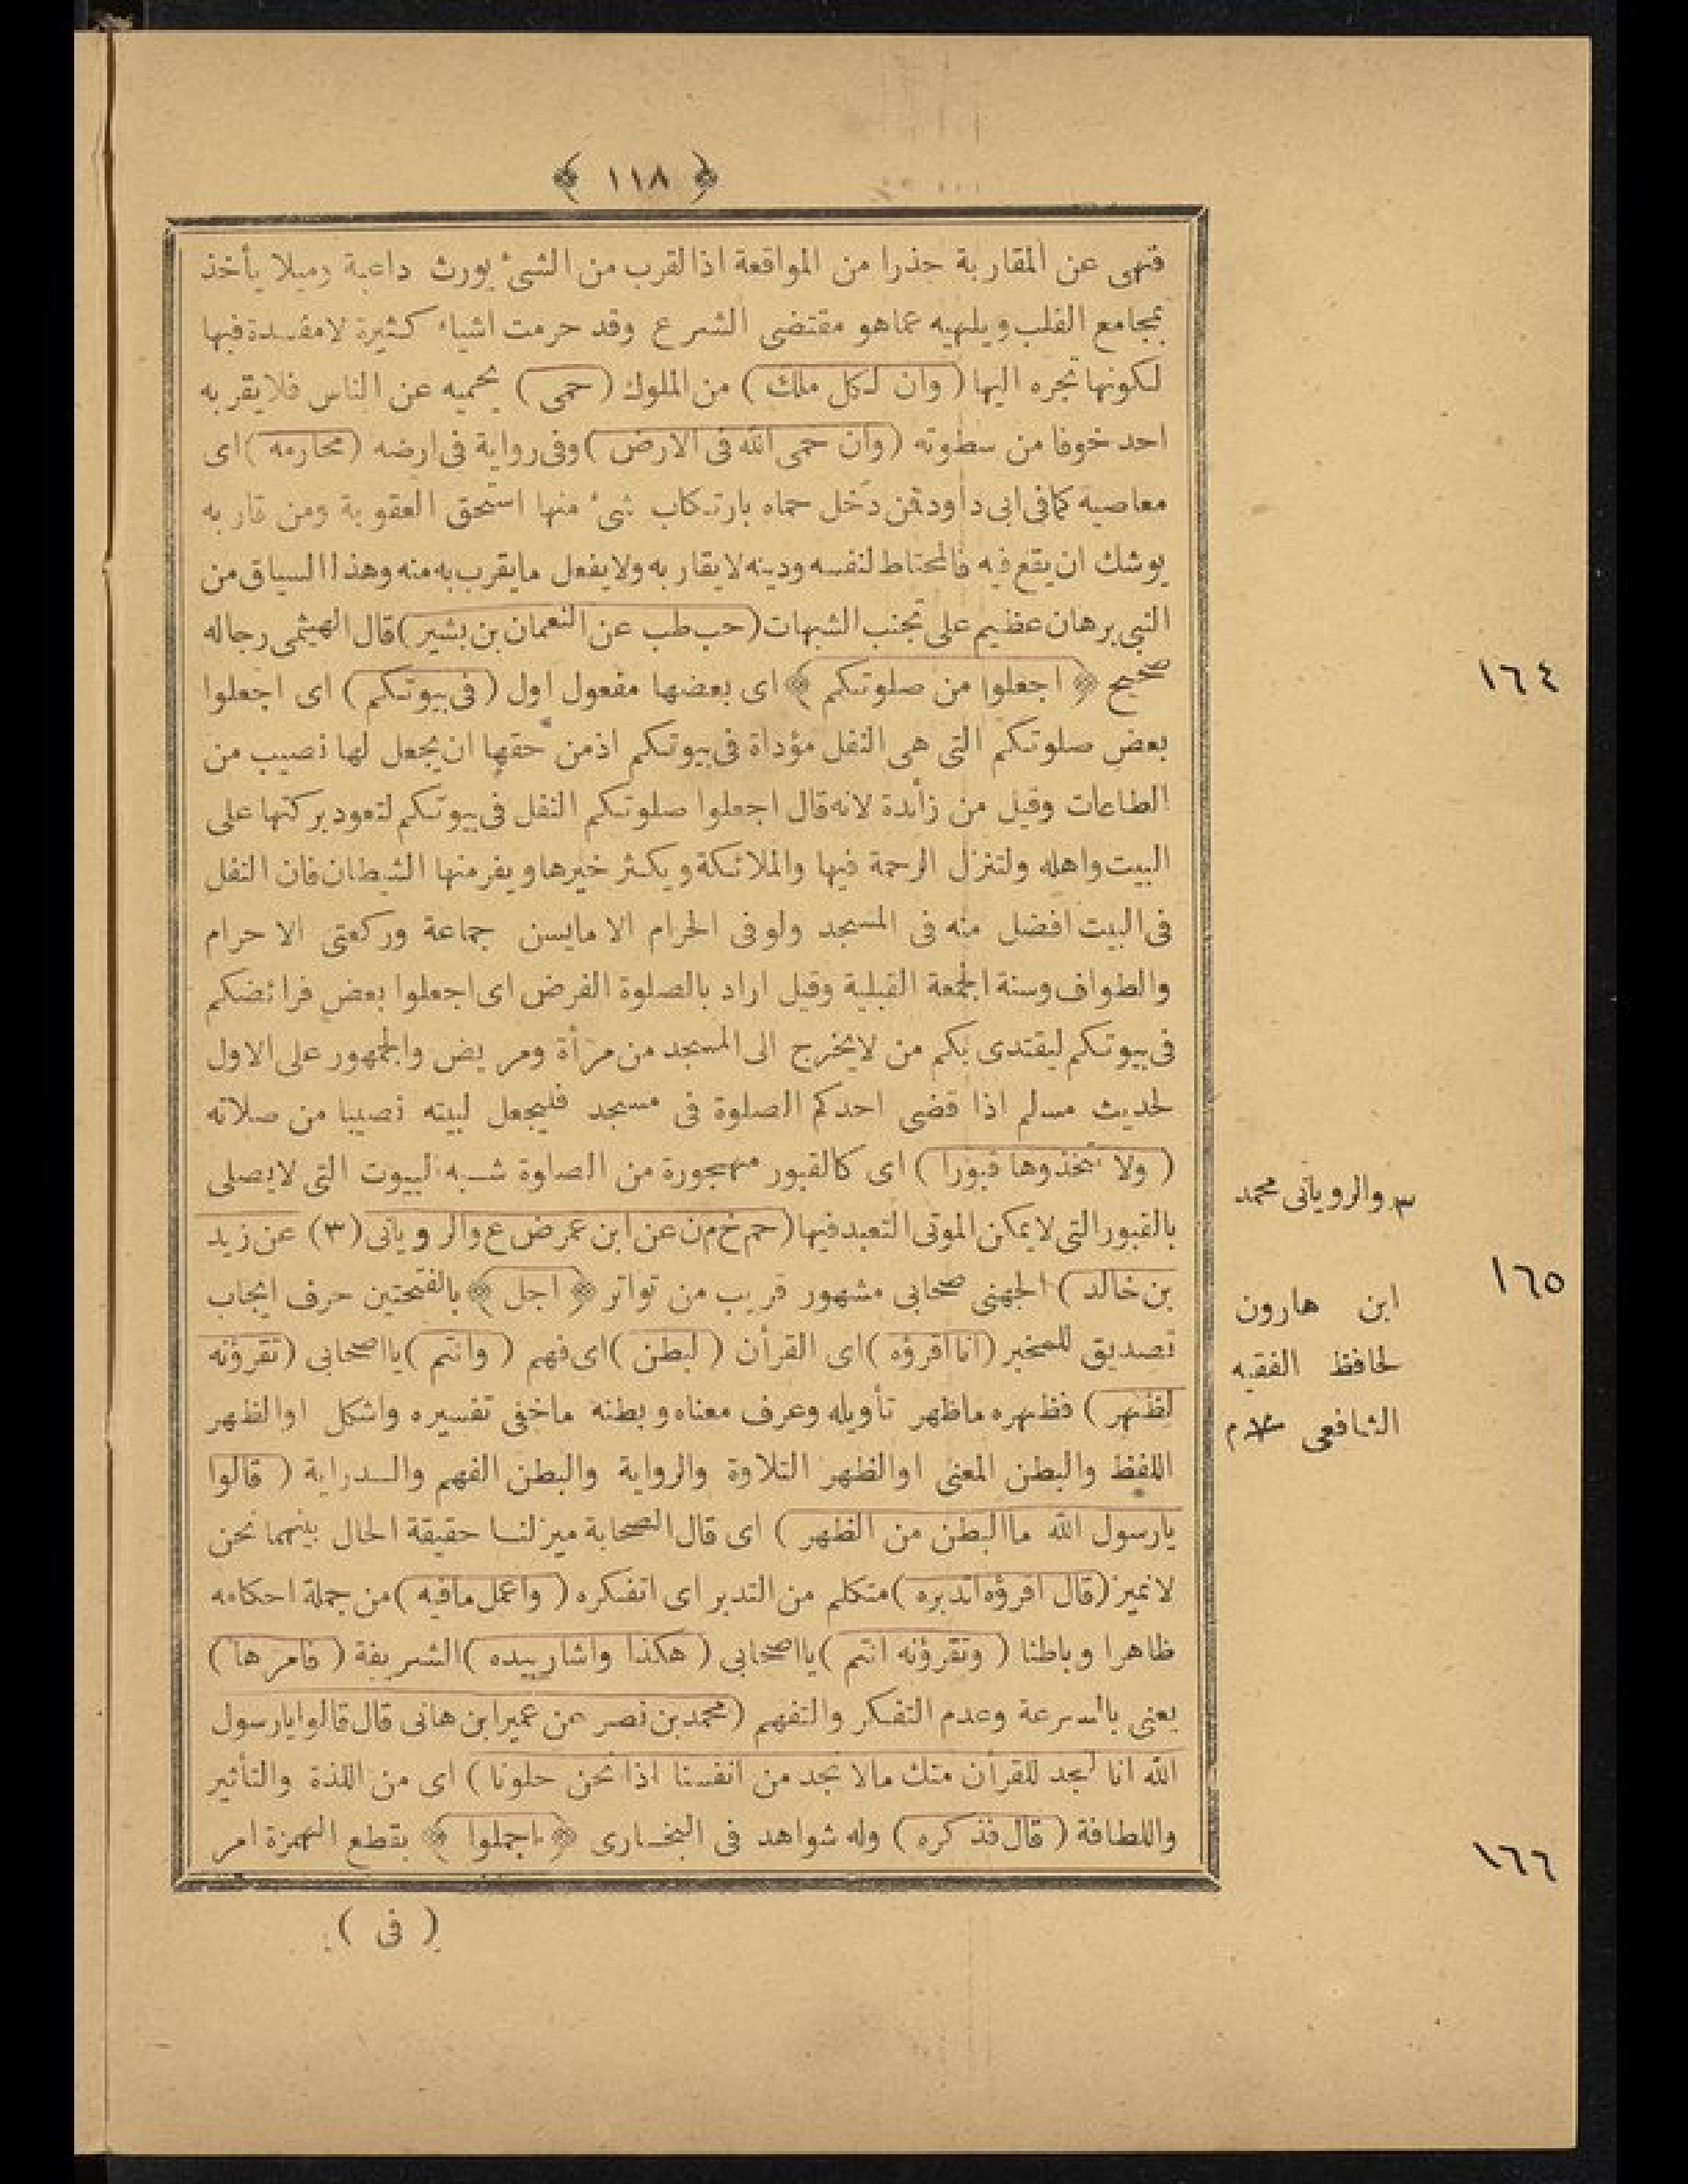 ﴿ ١١٨ ﴾
فنهى عن المقاربة حذرا من المواقعة اذالقرب من الشئ يورث داعية وميلا يأخذ
بمجامع القلب ويلهيه عماهو مقتضى الشرع وقد حرمت اشياء كثيرة لامفسدة فيها
لكونها تجره اليها (وان لكل ملك) من الملوك (حمى) يحميه عن الناس فلايقربه
احد خوفا من سطوته (وان حمى الله فى الارض) وفى رواية فى ارضه (محارمه) اى
معاصيه كمافى ابى داود فمن دخل حماه بارتكاب شئ منها استحق العقوبة ومن قاربه
يوشك ان يقع فيه فالمحتاط لنفسه ودينه لايقاربه ولايفعل مايقرب به منه وهذا السياق من
النبى برهان عظيم على تجنب الشبهات (حب طب عن النعمان بن بشير) قال الهيثمى رجاله
صحيح ﴿ اجعلوا من صلوتكم ﴾ اى بعضها مفعول اول (فى بيوتكم) اى اجعلوا
١٦٤
بعض صلوتكم التى هى النفل مؤداة فى بيوتكم اذمن حقها ان يجعل لها نصيب من
الطاعات وقيل من زائدة لانه قال اجعلوا صلوتكم النفل فى بيوتكم لتعود بركتها على
البيت واهله ولتنزل الرحمة فيها والملائكة ويكثر خيرها ويفر منها الشيطان فان النفل
فى البيت افضل منه فى المسجد ولو فى الحرام الا مايسن جماعة وركعتى الاحرام
والطواف وسنة الجمعة القبلية وقيل اراد بالصلوة الفرض اى اجعلوا بعض فرائضكم
فى بيوتكم ليقتدى بكم من لايخرج الى المسجد من مرأة ومريض والجمهور على الاول
لحديث مسلم اذا قضى احدكم الصلوة فى مسجد فليجعل لبيته نصيبا من صلاته
(ولا تتخذوها قبورا) اى كالقبور مهجورة من الصلوة شبه البيوت التى لايصلى
بالقبور التى لايمكن الموتى التعبد فيها (حم خ م ن عن ابن عمر ض ع والرويانى (٣) عن زيد
٣ والرويانى محمد
ابن هارون
لحافظ الفقيه
الشافعى
بن خالد) الجهنى صحابى مشهور قريب من تواتر ﴿ اجل ﴾ بالفتحتين حرف ايجاب
١٦٥
تصديق للمخبر (انا اقرؤه) اى القرأن (لبطن) اى فهم (وانتم) يااصحابى (تقرؤنه
لظهر) فظهره ماظهر تأويله وعرف معناه وبطنه ماخفى تفسيره واشكل اوالظهر
اللفظ والبطن المعنى اوالظهر التلاوة والرواية والبطن الفهم والدراية (قالوا
يارسول الله ماالبطن من الظهر) اى قال الصحابة ميز لنا حقيقة الحال بينهما نحن
لانميز (قال اقرؤه اتدبره) متكلم من التدبر اى اتفكره (واعمل مافيه) من جملة احكامه
ظاهرا وباطنا (وتقرؤنه انتم) يااصحابى (هكذا واشار بيده) الشريفة (فامرها)
يعنى بالسرعة وعدم التفكر والتفهم (محمد بن نصر عن عمير ابن هانى قال قالوا يارسول
الله انا لنجد للقرأن منك مالا نجد من انفسنا اذا نحن خلونا) اى من اللذة والتأثير
واللطافة (قال فذكره) وله شواهد فى البخارى ﴿ اجملوا ﴾ بقطع الهمزة امر
١٦٦
( فى )